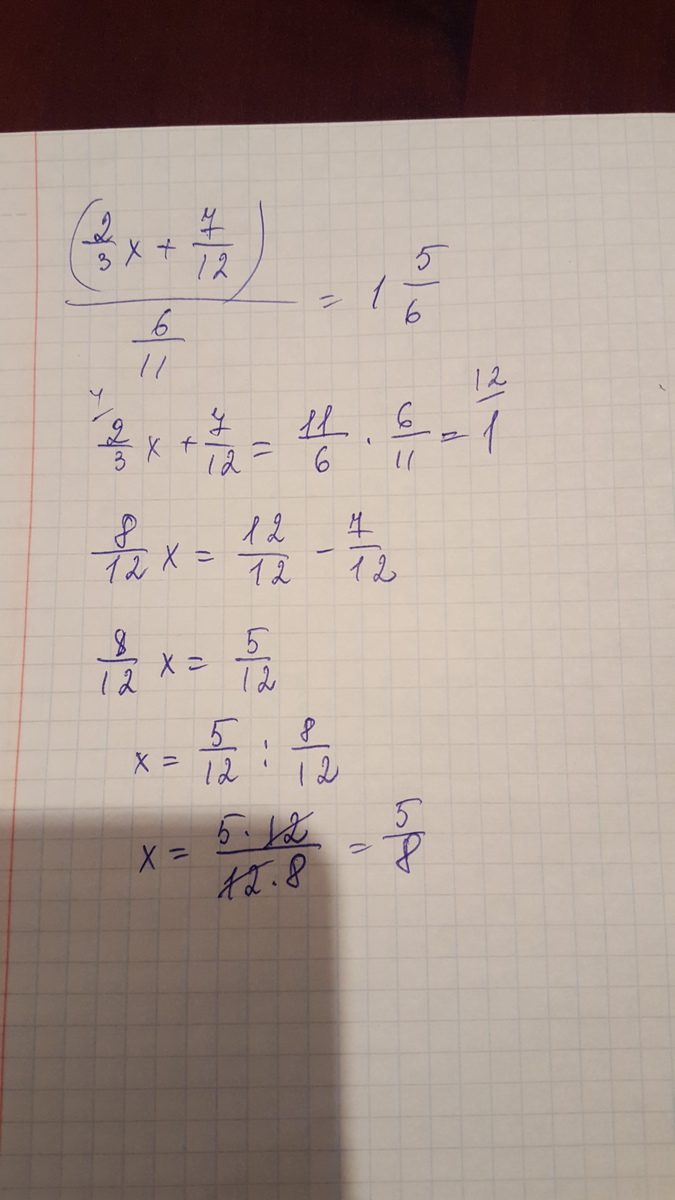 (2/3 x + 7/12) / 6/11 = 1 5/6
4/ 2/3 x + 7/12 = 11/6 · 6/11 = 1 12/
8/12 x = 12/12 - 7/12
8/12 x = 5/12
x = 5/12 : 8/12
x = 5·12/12·8 = 5/8